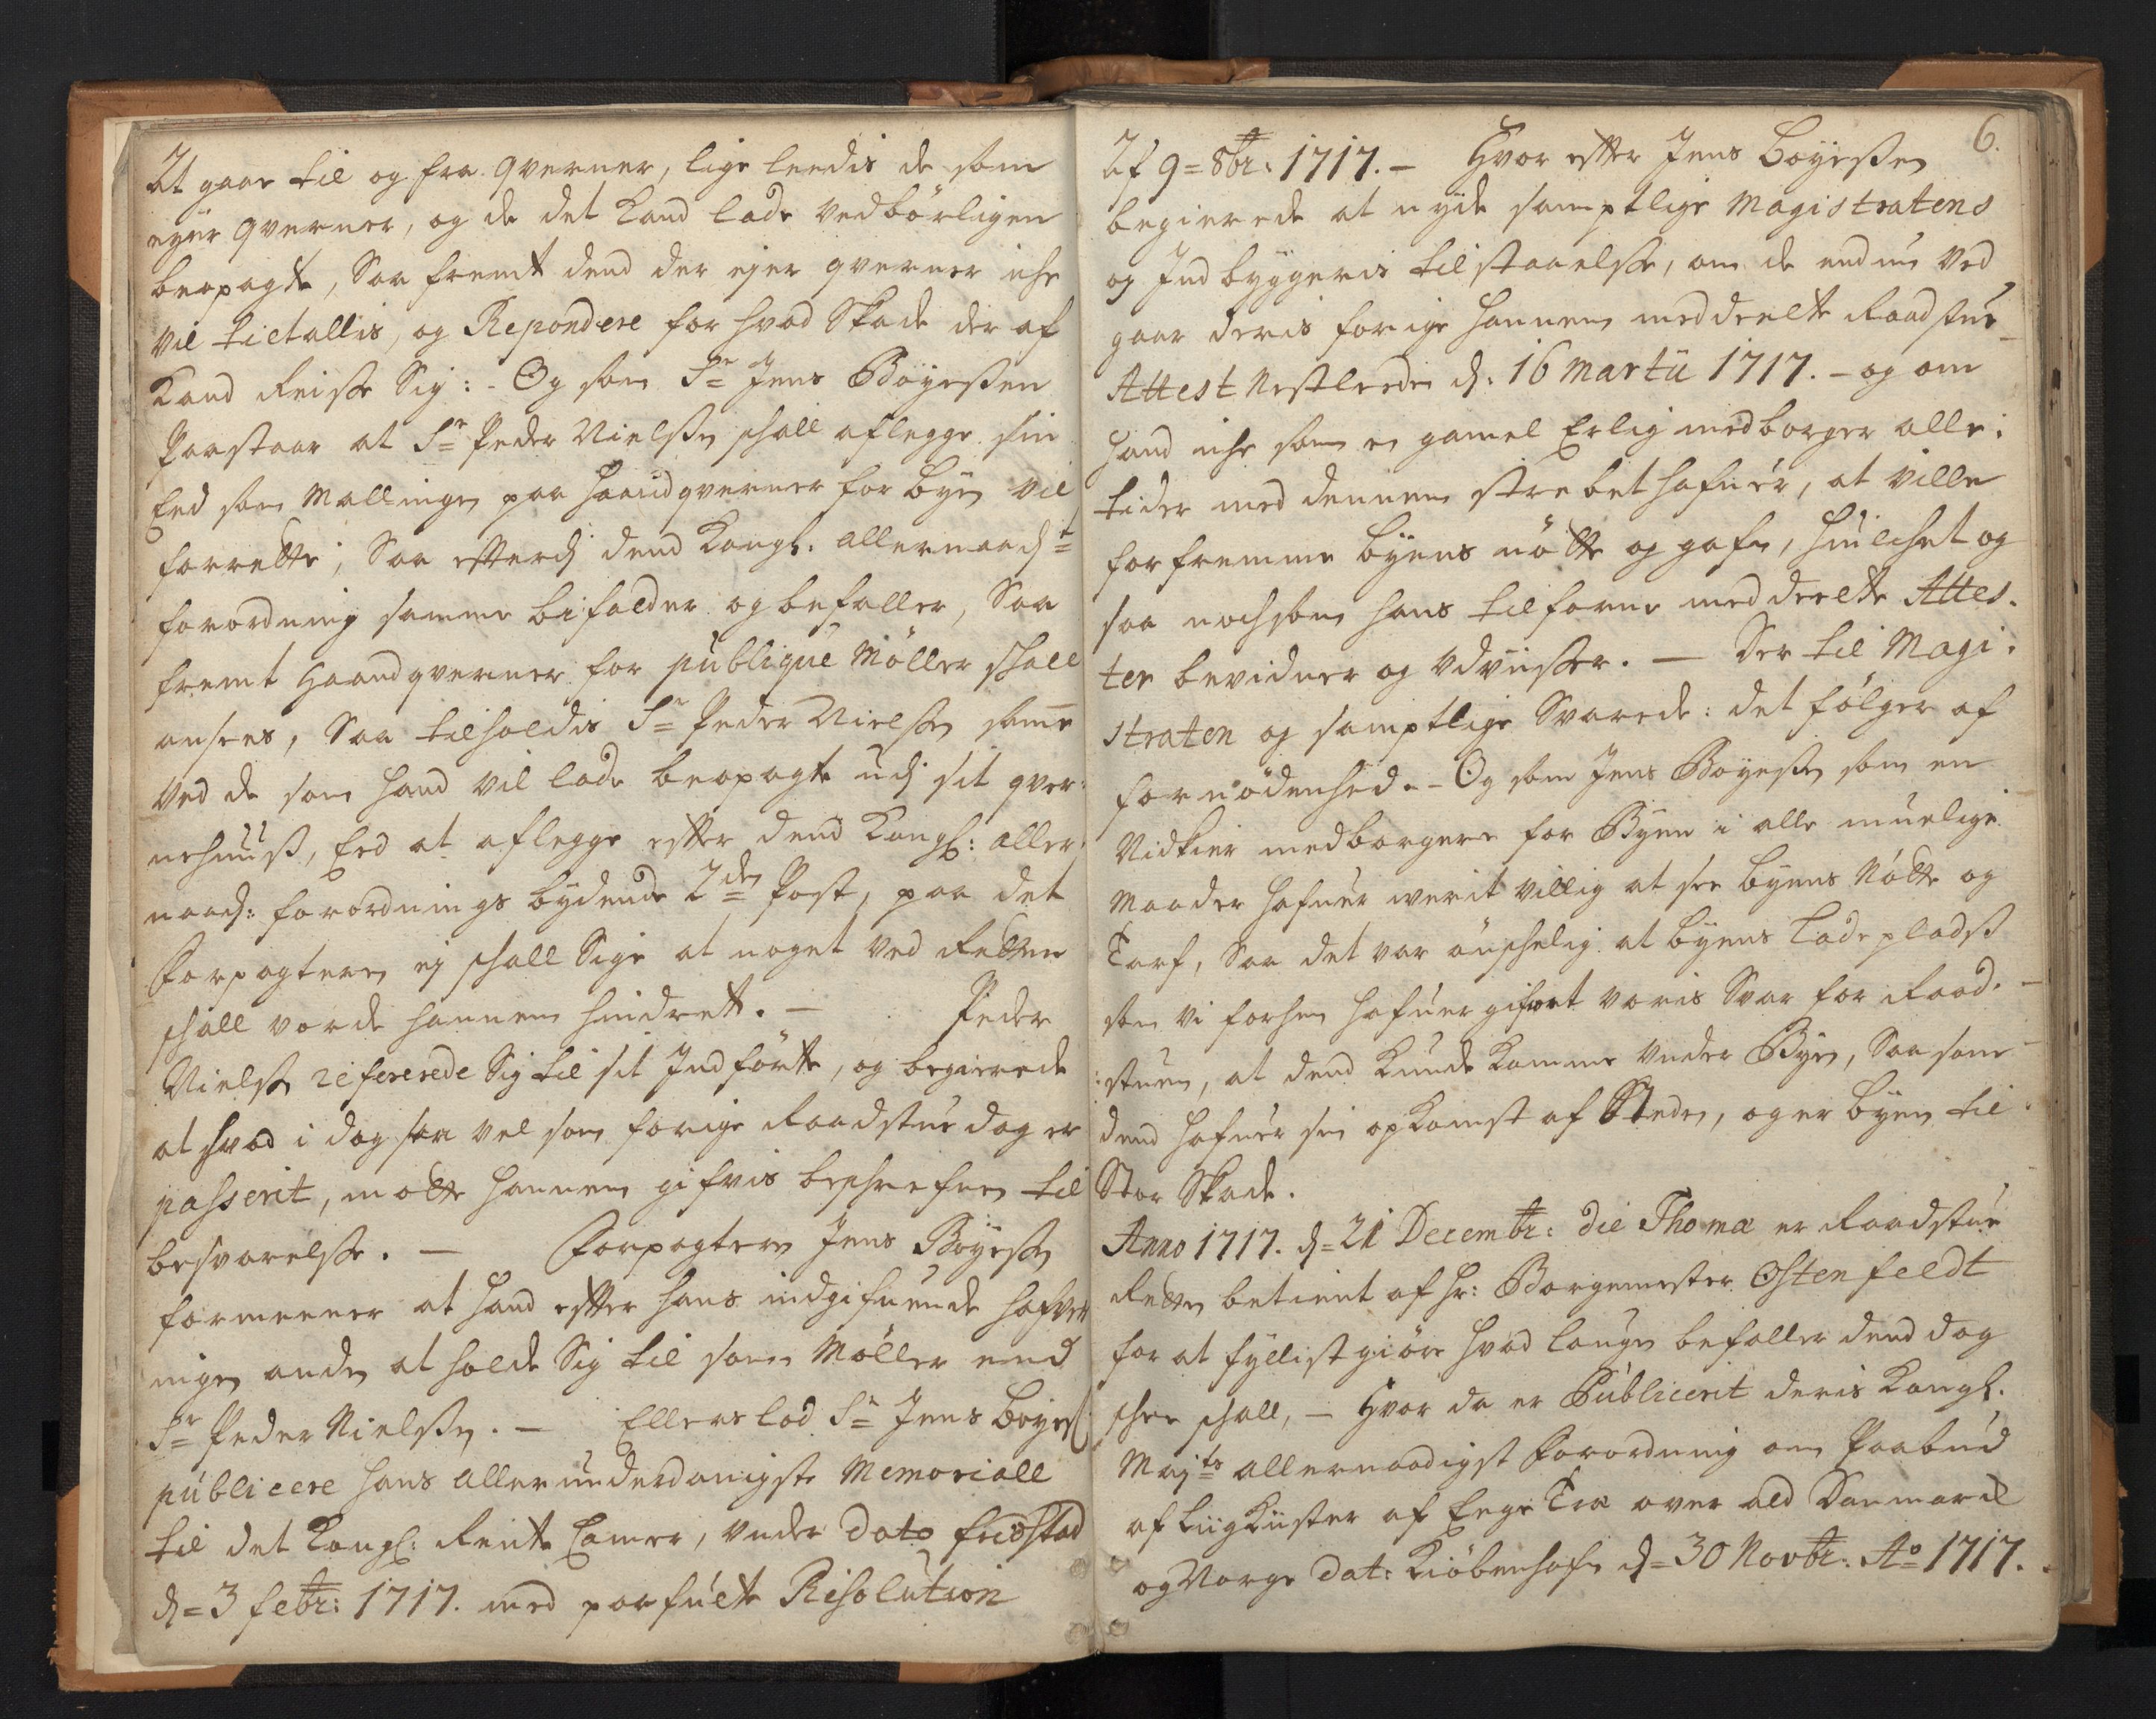 At gaae til og fra qverner, lige leedis de som
eyer qverner, og de det kand lade vedbörligen
bevagte, Saa fremt dend der ejer qverner iche
vil tiltallis, og Repondere for hvad Skade der af
kand Reise Sig: - Og som Sr Jens Böyesen
Paastaar at Sr Peder Nielsen schall aflegge sin
Eed som Mallingen paa Haandqverner for Byen vil
forrette; Saa efterdj dend Kongl. allernaadst
forordning samme bifalder og befaller, Saa
fremt Haandqverner for publique Möller schall
ansees, Saa tilholdis Sr Peder Nielsen samme
ved de som hand vil lade bevagte udj sit qver:
nehuuss, Eed at aflegge efter dend Kongl: aller:
naad: forordnings lydende 2den Post, paa det
forpagteren ej schall Sige at noget ved Retten
schall vorde hannem hindret. - Peder
Nielsen refererede Sig til sit Indförte, og begierede
at hvad i dag saa vel som forige Raadstue dag er
passerit, motte hannem gifvis beschrefven til
besvarelse. - Forpagteren Jens Böyesen
formeener at hand efter hans indgifvende hafver
ingen anden at holde Sig til som Möller end
Sr Peder Nielsen. - Ellers lod Sr Jens Boyes:
publicere hans allerunderdanigste Memoriall
til det Kongl: Rente Camer, under dato fridstad
d= 3 febr: 1717. med paafulte Resolution
6.
Af 9= 8br: 1717. - Hvor efter Jens Boyesen
begierede at nyde samptlige Magistratens
og Indbyggeris tilstaaelse, om de endnu ved
gaar deris forige hannem meddeelte Raadstue
Attest Nestleeden d: 16 Martii 1717. - og om
hand iche som en gamel Erlig medborger alle:
tider med dennem strebet hafuer, at ville
forfremme Byens nötte og gafn, huilchet og
saa nochsom hans tilforne meddeelte Attes:
ter bevidner og Udviisser. - Der til Magi:
straten og samptlige Svarede: det fölger af
fornödenhed. - Og som Jens Boyesen som en
Vidkier medborgere for Byen i alle muelige
Maader hafuer werit villig at see Byens Nötte og
Tarf, Saa det var önschelig at Byens Ladeplads
som vi forhen hafuer gifuet voris Svar for Raad-
:stuen, at dend kunde komme under Byen, Saasom
dend hafuer sin opkomst af Steden, og er Byen til
Stor Skade.
Anno 1717. d= 21 Decembr: die Thomæ er Raadstue
Retten betient af Hr: Borgemester Ostenfeldt
for at fyllistgiöre hvad Lougen befaller dend dag
schee schall, - Hvor da er Publicerit deris Kongl.
Majts allernaadigst Forordning om Paabud
af Liigkister af Eege Træ over ald Danmarck
og Norge dat: Kiöbenhafn d= 30 Novbr: Ao 1717.